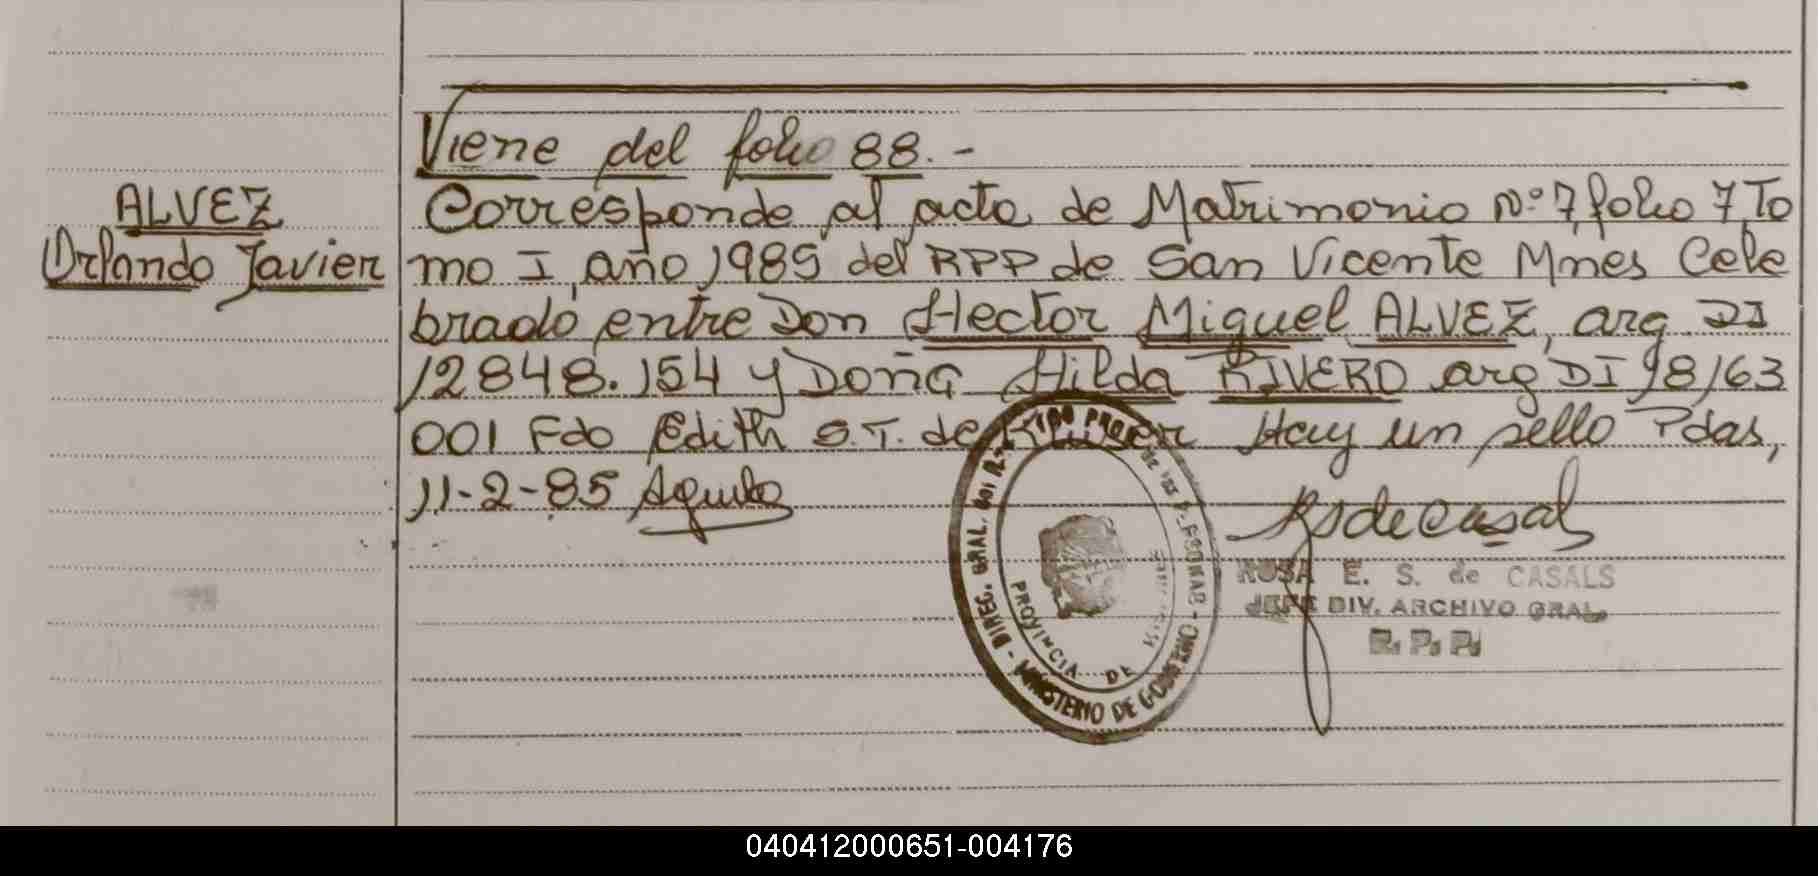 Viene del folio 88.-
ALVEZ
Orlando Javier
Corresponde al acta de Matrimonio Nº 7, folio 7 To
mo I, año 1985 del RPP de San Vicente Mnes Cele
brado entre Don Hector Miguel ALVEZ, arg DI
12848.154 y Doña Hilda RIVERO arg DI 18163
001 Fdo Edith S.T. de Hay un sello Pdas,
11-2-85
DIREC. GRAL. DEL
MINISTERIO DE GOBIERNO
PROVINCIA DE
ROSA E. S. de CASALS
JEFE DIV. ARCHIVO GRAL.
R. P. P.
040412000651-004176